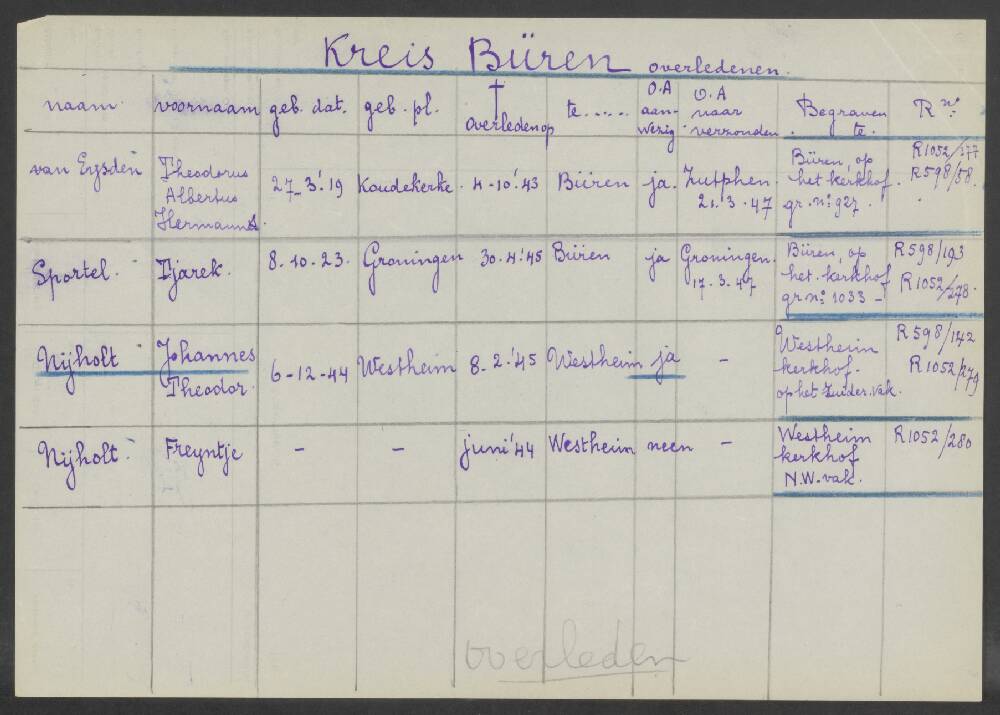 Kreis Büren overledenen.
naam. voornaam geb. dat. geb. pl. † overleden op te ..... O.A aanwezig O.A naar verzonden Begraven te. R nº:
van Eysden Theodorus Albertus Hermanus. 27-3.'19 Koudekerke. 4-10.'43 Büren ja. Zutphen. 21.3.47 Büren, op het kerkhof. gr. nº: 927. R1052/277 R598/58.
Sportel. Tjarek. 8.10.23. Groningen 30.4.'45 Büren ja Groningen. 17.3.47 Büren, op het kerkhof gr nº: 1033 - R598/193 R1052/278.
Nijholt Johannes Theodor. 6-12-44 Westheim 8-2.'45 Westheim ja - Westheim kerkhof. op het Zuider.vak. R598/142 R1052/279
Nijholt. Freyntje - - juni '44 Westheim neen - Westheim kerkhof N.W.vak. R1052/280
overleden